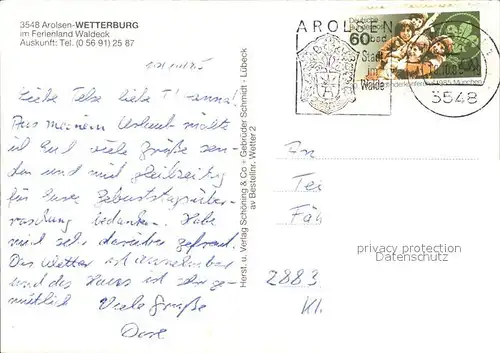 3548 Arolsen-WETTERBURG
im Ferienland Waldeck
Auskunft: Tel. (0 56 91) 25 87
Liebe Else liebe
Aus meinem Urlaub möchte
ich Euch viele Grüße sen-
den und mich gleichzeitig
für Eure Geburtstagsüber-
raschung bedanken. Habe
mich sehr darüber gefreut.
Das Wetter ist annehmbar
und das Haus ist sehr ge-
mütlich Viele Grüße
Herst. u. Verlag Schöning & Co + Gebrüder Schmidt · Lübeck
av Bestellnr. Wetter 2
AROLSEN
Deutsche
60
Stadt
im
Walde
1985 München
3548
An
Fa
2883
Kl
privacy protection
Datenschutz